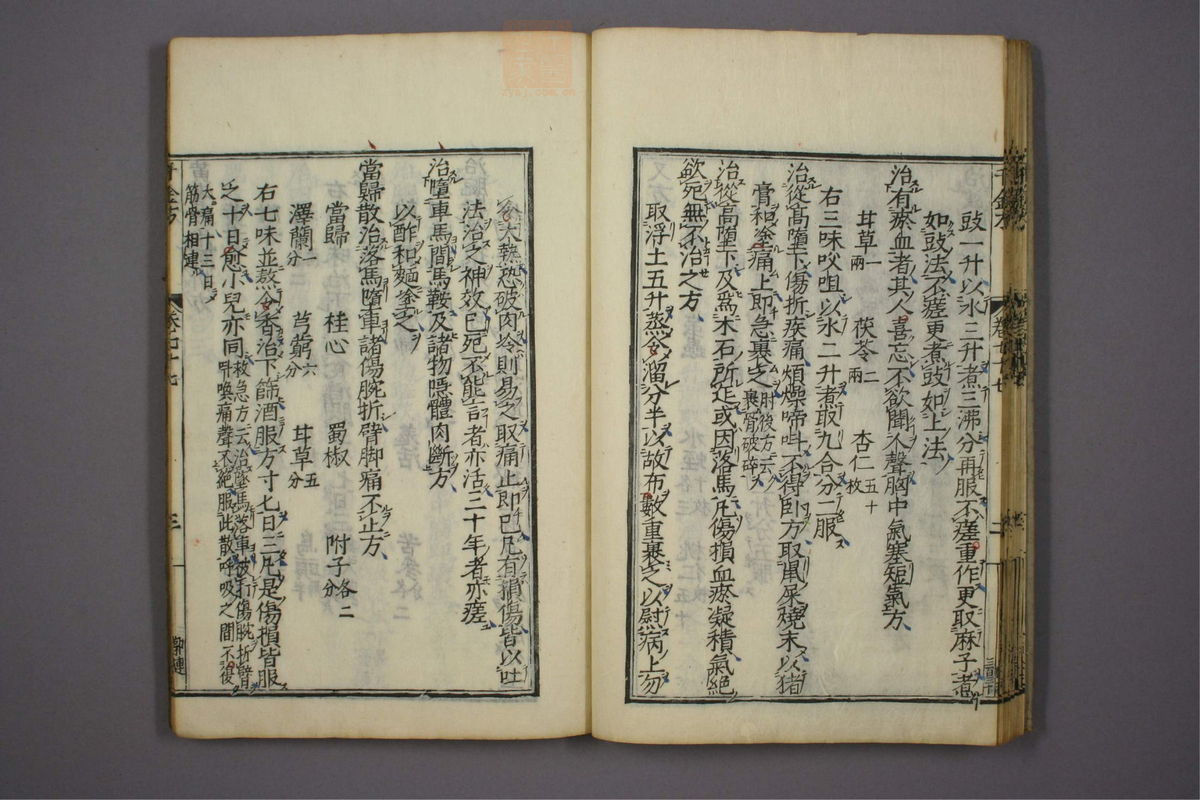 豉一升以水三升煮三沸分再服不瘥重作更取麻子煮
如豉法不瘥更煮豉如上法
治有瘀血者其人喜忘不欲聞人聲胸中氣塞短氣方
甘草一兩 茯苓二兩 杏仁五十枚
右三味㕮咀以水二升煮取九合分二服
治從高墮下傷折疾痛煩燥啼叫不得卧方取鼠屎燒末以猪
膏和塗痛上即急裹之肘後方云裹骨破碎
治從高墮下及爲木石所迮或因落馬凡傷損血瘀凝積氣絶
欲死無不治之方
取淨土五升蒸令溜分半以故布數重裹之以熨病上勿
令大熱恐破肉冷則易之取痛止即已凡有損傷皆以吐
法治之神效已死不能言者亦活三十年者亦瘥
治墮車馬間馬鞍及諸物隱體肉斷方
以酢和麵塗之
當歸散治落馬墮車諸傷腕折臂脚痛不止方
當歸 桂心 蜀椒 附子各二分
澤蘭一分 芎藭六分 甘草五分
右七味並熬令香治下篩酒服方寸七日三凡是傷損皆服
之十日愈小兒亦同救急方云治墜馬落車被打傷腕折臂
呌喚痛聲不絶服此散呼吸之間不復
大痛十三日
筋骨相連
千金方 卷二十七 三